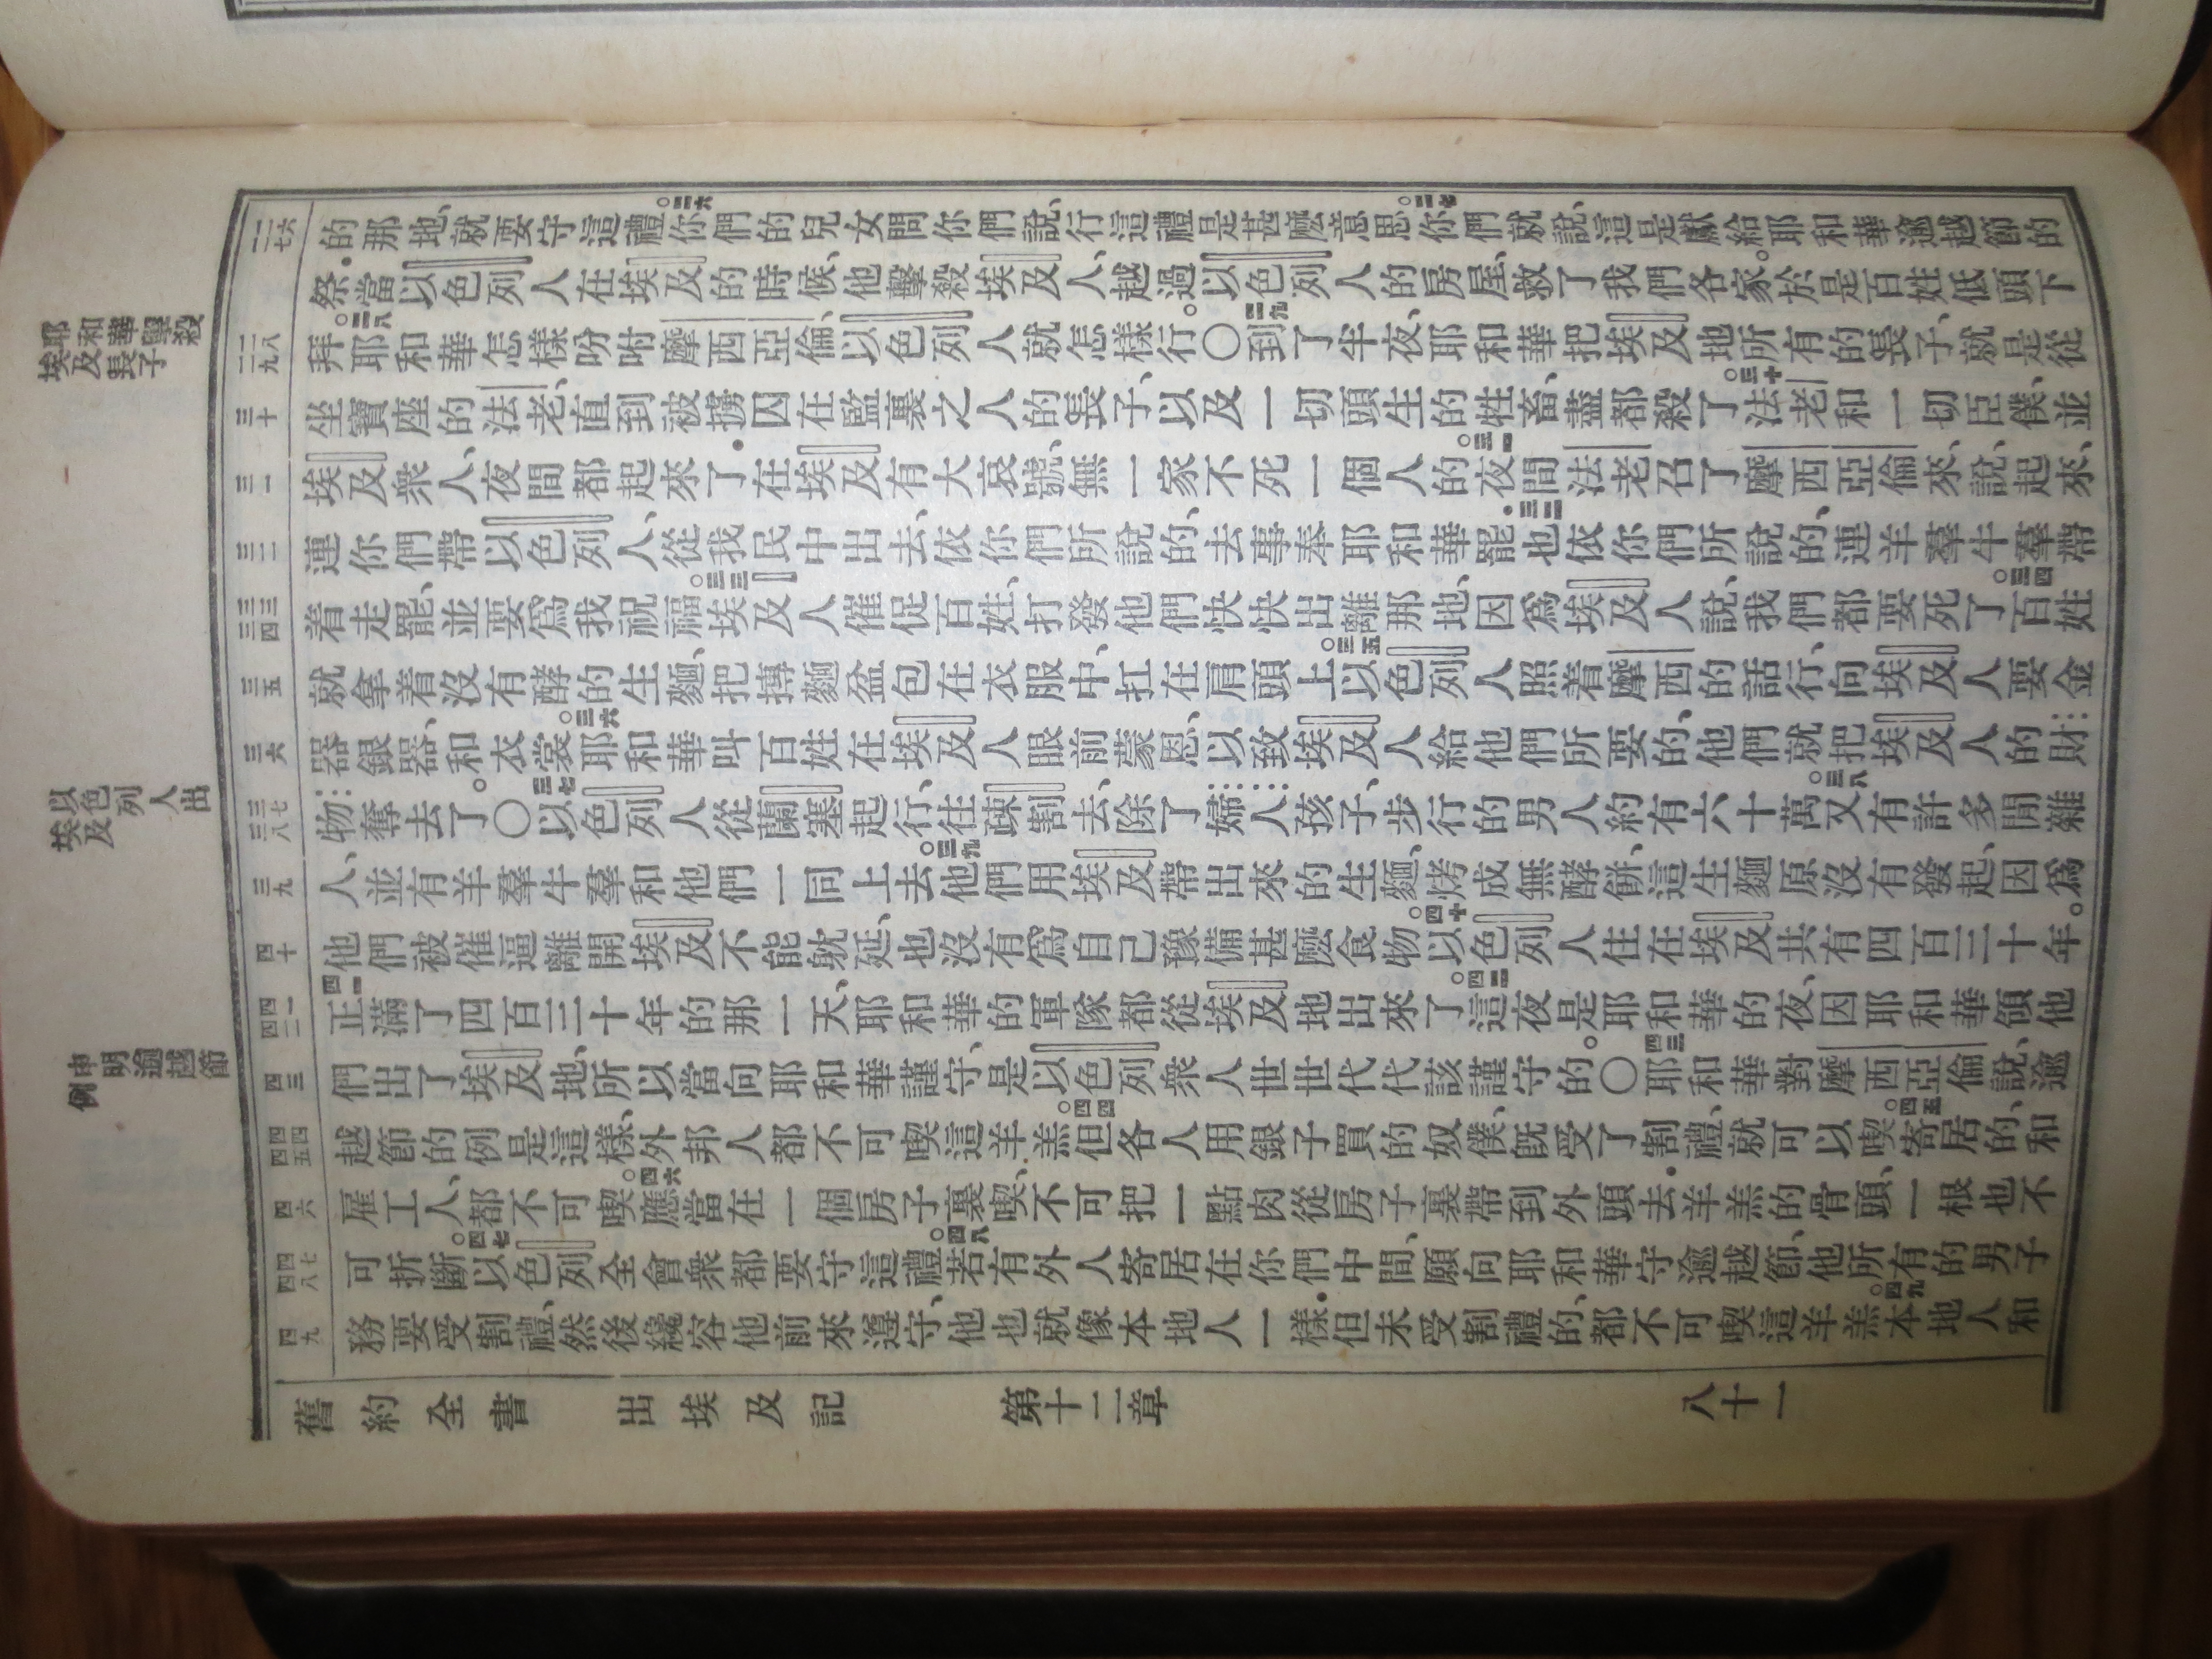 耶和華擊殺
埃及長子
以色列人出
埃及
申明逾越節
例
二六 二七
的那地、就要守這禮。二六你們的兒女問你們說、行這禮是甚麼意思。二七你們就說、這是獻給耶和華逾越節的
祭・當以色列人在埃及的時候、他擊殺埃及人、越過以色列人的房屋、救了我們各家。於是百姓低頭下
二八 二九
拜。二八耶和華怎樣吩咐摩西亞倫、以色列人就怎樣行。〇二九到了半夜、耶和華把埃及地所有的長子、就是從
三十
坐寶座的法老、直到被擄囚在監裏之人的長子、以及一切頭生的牲畜、盡都殺了。三十法老和一切臣僕、並
三一
埃及衆人、夜間都起來了・在埃及有大哀號、無一家不死一個人的。三一夜間法老召了摩西亞倫來、說、起來、
三二
連你們帶以色列人、從我民中出去、依你們所說的、去事奉耶和華罷・三二也依你們所說的、連羊羣牛羣帶
三三 三四
着走罷、並要爲我祝福。三三埃及人催促百姓、打發他們快快出離那地、因爲埃及人說、我們都要死了。三四百姓
三五
就拿着沒有酵的生麵、把摶麵盆包在衣服中、扛在肩頭上。三五以色列人照着摩西的話行、向埃及人要金
三六
器銀器、和衣裳。三六耶和華叫百姓在埃及人眼前蒙恩、以致埃及人給他們所要的、他們就把埃及人的財
三七 三八
物奪去了。〇三七以色列人從蘭塞起行、往疎割去、除了婦人孩子、步行的男人約有六十萬。三八又有許多閒雜
三九
人、並有羊羣牛羣、和他們一同上去。三九他們用埃及帶出來的生麵、烤成無酵餅、這生麵原沒有發起、因爲
四十
他們被催逼離開埃及、不能躭延、也沒有爲自己豫備甚麼食物。四十以色列人住在埃及共有四百三十年。
四一 四二
四一正滿了四百三十年的那一天、耶和華的軍隊都從埃及地出來了。四二這夜是耶和華的夜、因耶和華領他
四三
們出了埃及地、所以當向耶和華謹守、是以色列衆人世世代代該謹守的。〇四三耶和華對摩西亞倫說、逾
四四 四五
越節的例是這樣、外邦人都不可喫這羊羔。四四但各人用銀子買的奴僕、旣受了割禮、就可以喫。四五寄居的、和
四六
雇工人、都不可喫。四六應當在一個房子裏喫、不可把一點肉從房子裏帶到外頭去・羊羔的骨頭、一根也不
四七 四八
可折斷。四七以色列全會衆都要守這禮。四八若有外人寄居在你們中間、願向耶和華守逾越節、他所有的男子
四九
務要受割禮、然後纔容他前來遵守、他也就像本地人一樣・但未受割禮的、都不可喫這羊羔。四九本地人和
舊約全書 出埃及記 第十二章 八十一